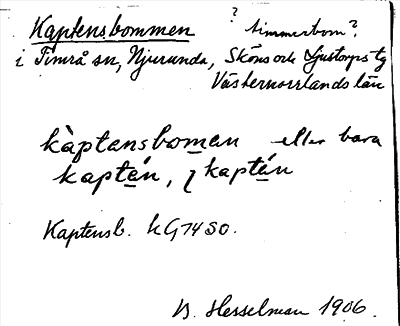 Kaptensbommen ? timmerbom?
i Timrå sn, Njurunda, Sköns och Ljustorps tg
Västernorrlands län
kàptensbomen eller bara
kaptén, j kaptén
Kaptensb. kG74SO.
B. Hesselman 1906.